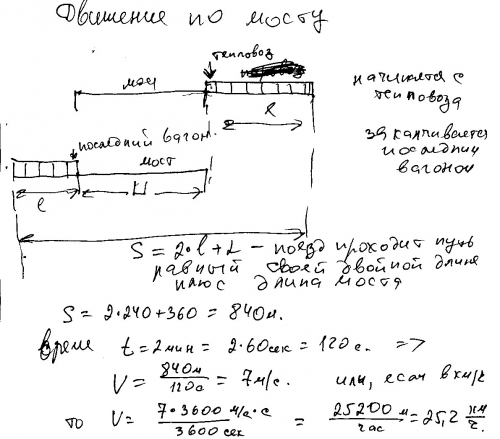 Движение по мосту
тепловоз
мост
начинается с
тепловоза
l
последний вагон
мост
заканчивается
последним
вагоном
l
L
S = 2·l + L – поезд проходит путь
равный своей двойной длине
плюс длина моста
S = 2·240 + 360 = 840 м.
Время t = 2 мин = 2·60 сек = 120 с. =>
V = 840м / 120с = 7 м/с. или, если в км/ч
то V = 7·3600 м/с·с / 3600 сек = 25200 м / час = 25,2 км/ч.